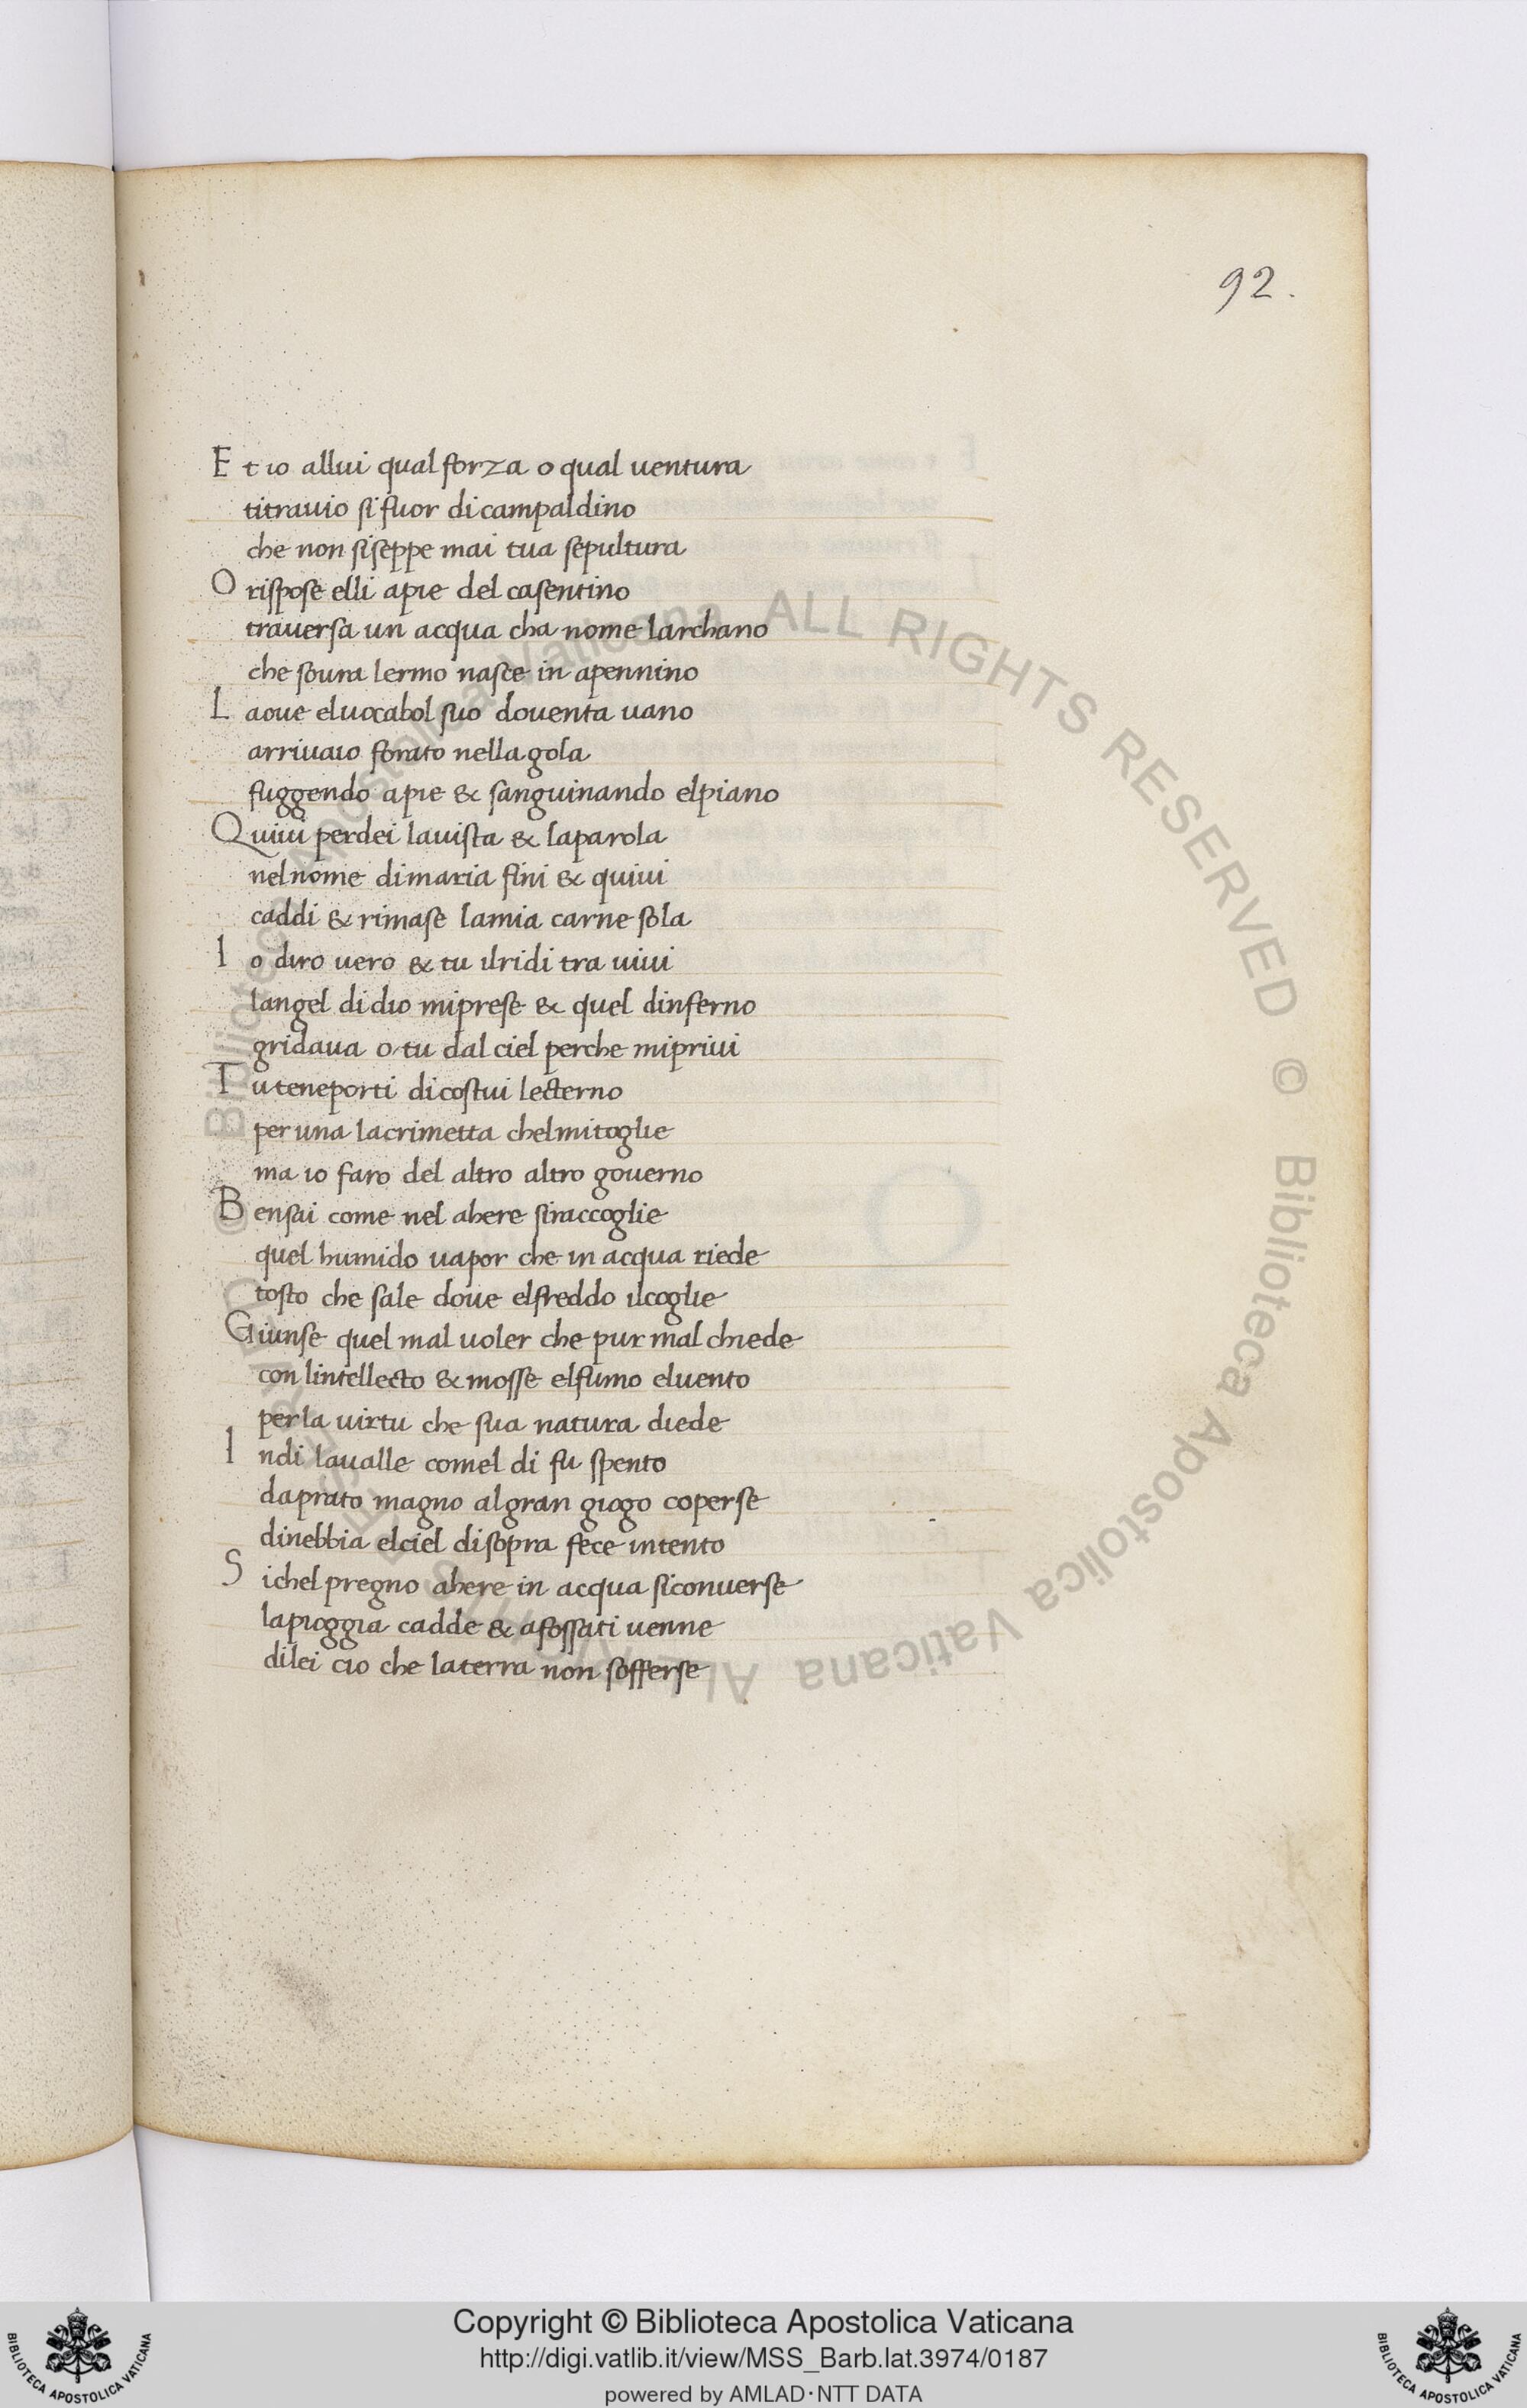 92.
Et io allui qual forza o qual uentura
titrauio si fuor dicampaldino
che non siseppe mai tua sepultura
O rispose elli apie del casentino
trauersa un acqua cha nome larchano
che soura lermo nasce in apennino
Laoue eluocabol suo douenta uano
arriuaio forato nellagola
fuggendo apie & sanguinando elpiano
Quiui perdei lauista & laparola
nelnome dimaria fini & quiui
caddi & rimase lamia carne sola
Io diro uero & tu ilridi tra uiui
langel didio miprese & quel dinferno
gridaua o tu dal ciel perche mipriui
Tuteneporti dicostui lecterno
peruna lacrimetta chelmitoglie
ma io faro del altro altro gouerno
Bensai come nel ahere siraccoglie
quel humido uapor che in acqua riede
tosto che sale doue elfreddo ilcoglie
Giunse quel mal uoler che pur mal chiede
con lintellecto & mosse elfumo eluento
perla uirtu che sua natura diede
Indi laualle comel di fu spento
daprato magno algran giogo coperse
dinebbia elciel disopra fece intento
Sichel pregno ahere in acqua siconuerse
lapioggia cadde & afossati uenne
dilei cio che laterra non sofferse
© Biblioteca Apostolica Vaticana ALL RIGHTS RESERVED © Biblioteca Apostolica Vaticana ALL RIGHTS RESERVED
Copyright © Biblioteca Apostolica Vaticana
http://digi.vatlib.it/view/MSS_Barb.lat.3974/0187
powered by AMLAD·NTT DATA
BIBLIOTECA APOSTOLICA VATICANA
BIBLIOTECA APOSTOLICA VATICANA